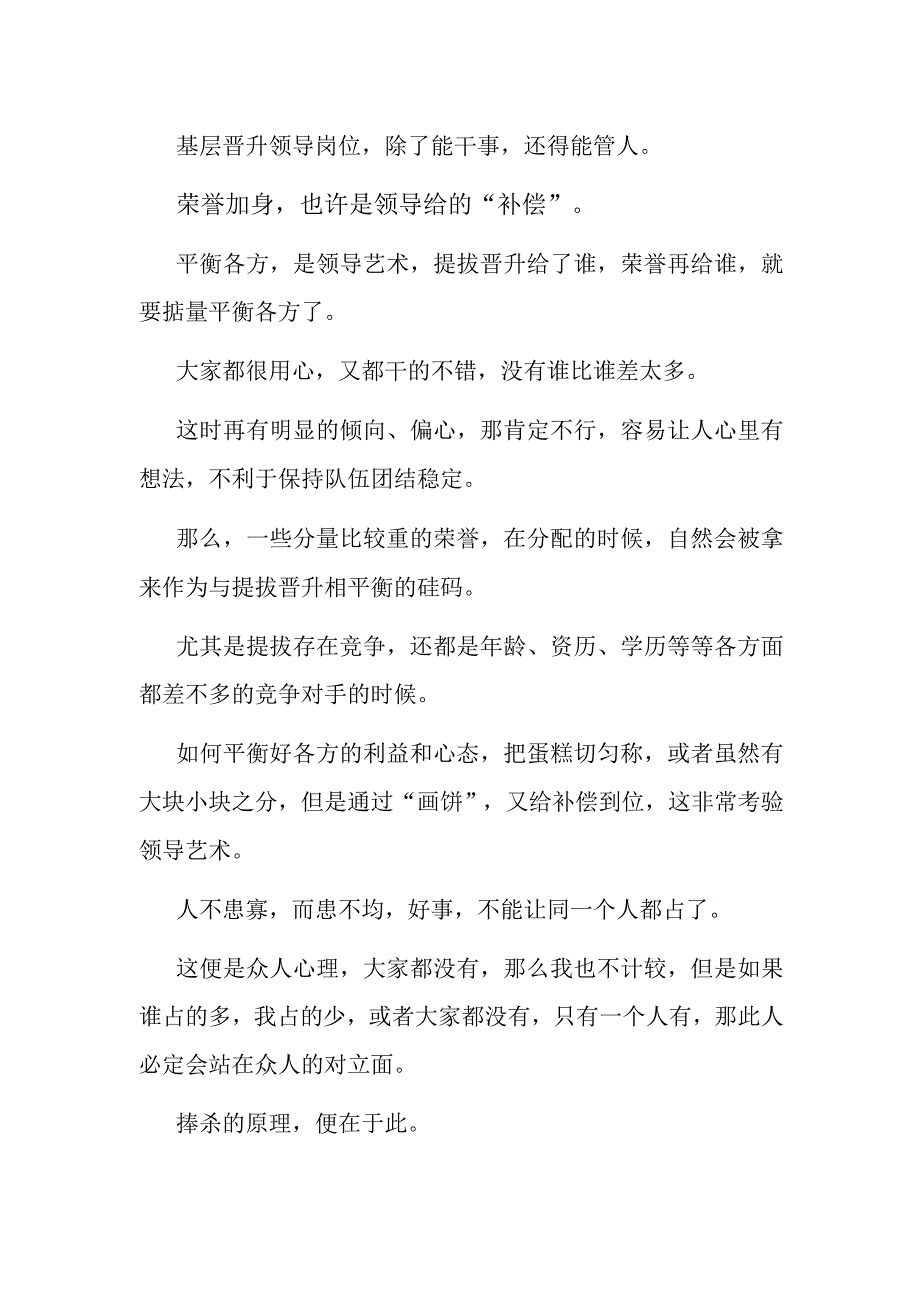 基层晋升领导岗位，除了能干事，还得能管人。
荣誉加身，也许是领导给的“补偿”。
平衡各方，是领导艺术，提拔晋升给了谁，荣誉再给谁，就
要掂量平衡各方了。
大家都很用心，又都干的不错，没有谁比谁差太多。
这时再有明显的倾向、偏心，那肯定不行，容易让人心里有
想法，不利于保持队伍团结稳定。
那么，一些分量比较重的荣誉，在分配的时候，自然会被拿
来作为与提拔晋升相平衡的硅码。
尤其是提拔存在竞争，还都是年龄、资历、学历等等各方面
都差不多的竞争对手的时候。
如何平衡好各方的利益和心态，把蛋糕切匀称，或者虽然有
大块小块之分，但是通过“画饼”，又给补偿到位，这非常考验
领导艺术。
人不患寡，而患不均，好事，不能让同一个人都占了。
这便是众人心理，大家都没有，那么我也不计较，但是如果
谁占的多，我占的少，或者大家都没有，只有一个人有，那此人
必定会站在众人的对立面。
捧杀的原理，便在于此。